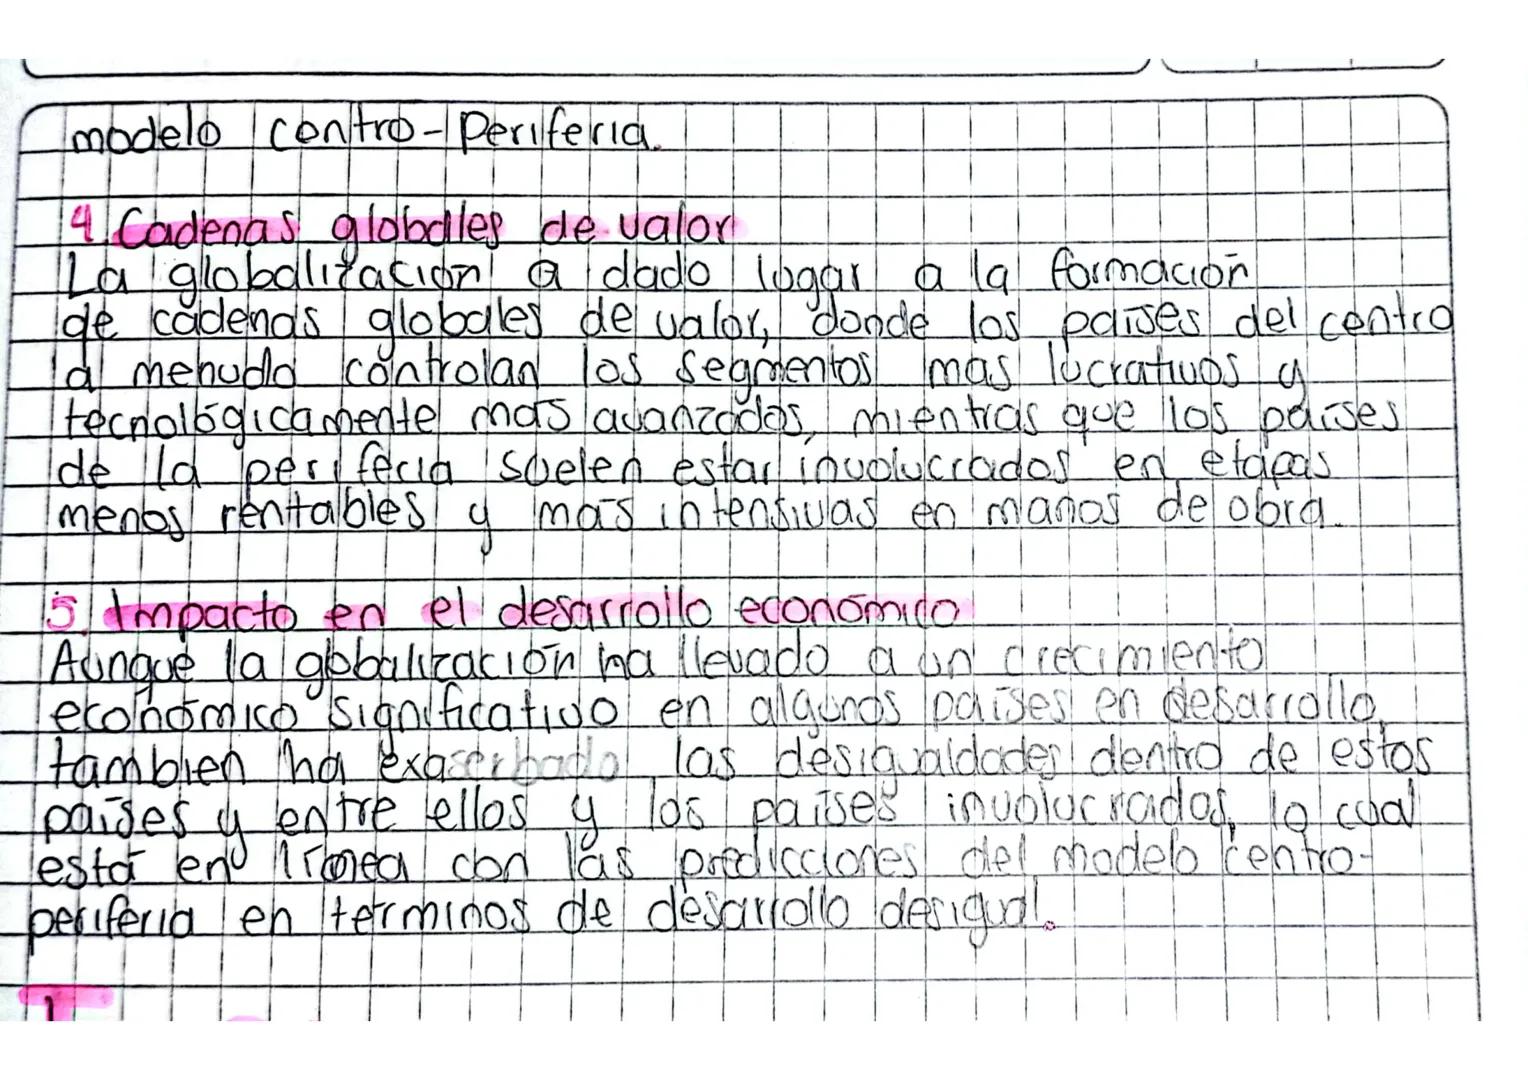 modelo centro-Periferia.
4. Cadenas globalles de valor
La globalización a dado lugar a la formación
de cadenas globales de valor, donde los países del centro
a menudo controlan los segmentos mas lucrativos y
tecnológicamente más avanzados, mientras que los países
de la periferia suelen estar involucrados en etapas
menos rentables y más intensivas en manos de obra.
5. Impacto en el desarrollo económico
Aunque la globalización ha llevado a un crecimiento
económico significativo en algunos países en desarrollo,
tambien ha exaserbado las desigualdades dentro de estos
países y entre ellos y los países involucrados, lo cual
está en línea con las predicciones del modelo centro-
periferia en términos de desarrollo desigual.